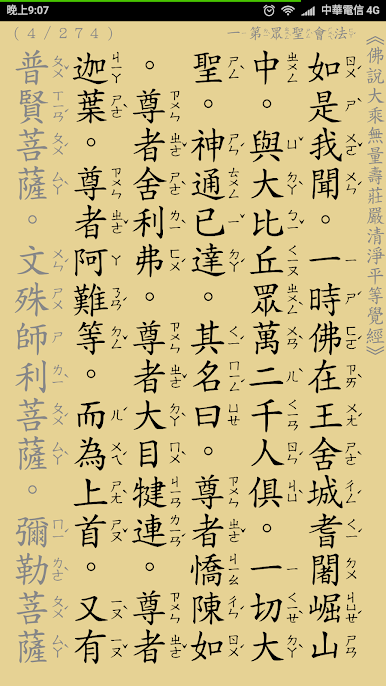 晚上9:07
中華電信 4G
《佛說大乘無量壽莊嚴清淨平等覺經》
法會聖眾第一
(4/274)
如是我聞。一時佛在王舍城耆闍崛山
中。與大比丘眾萬二千人俱。一切大
聖。神通已達。其名曰。尊者憍陳如
。尊者舍利弗。尊者大目犍連。尊者
迦葉。尊者阿難等。而為上首。又有
普賢菩薩。文殊師利菩薩。彌勒菩薩